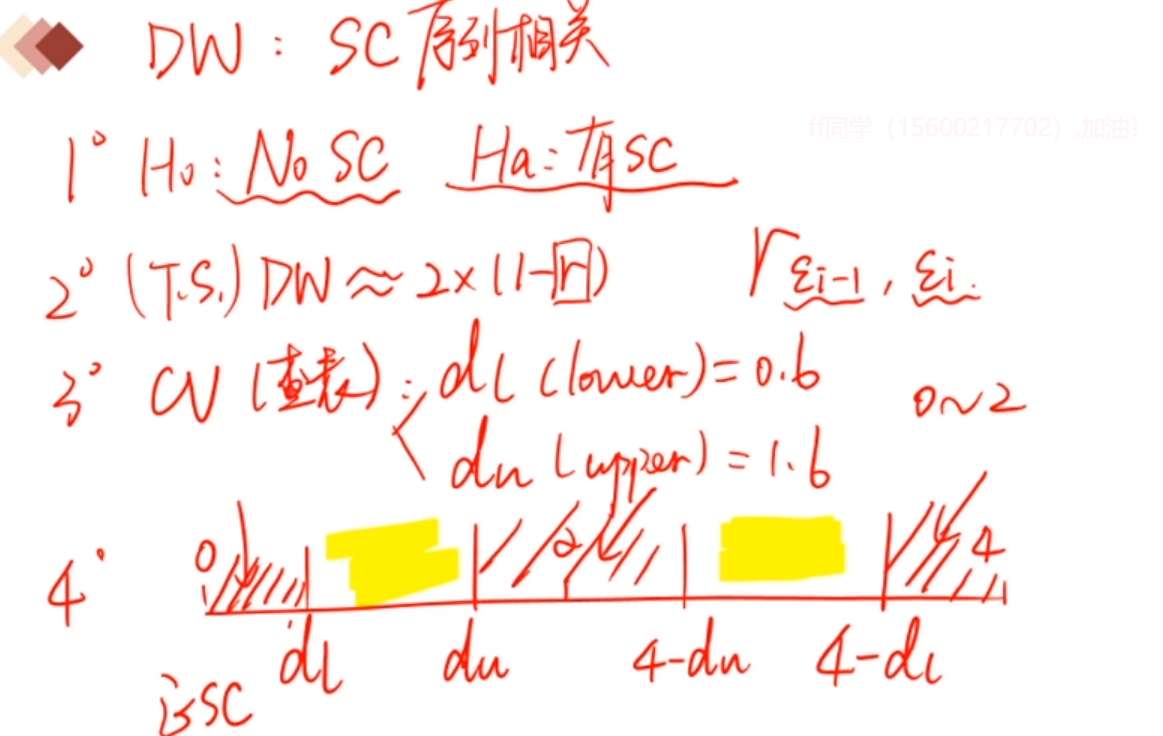 DW: SC 序列相关
ff同学 (15600217702) ,加油!
1° H₀: No SC Ha: 有SC
2° (T.S.) DW ≈ 2×(1-r) r εi-1, εi.
3° CV (查表): dl (lower) = 0.6 0~2
du (upper) = 1.6
4° 0 2 4
dl du 4-du 4-dl
正SC